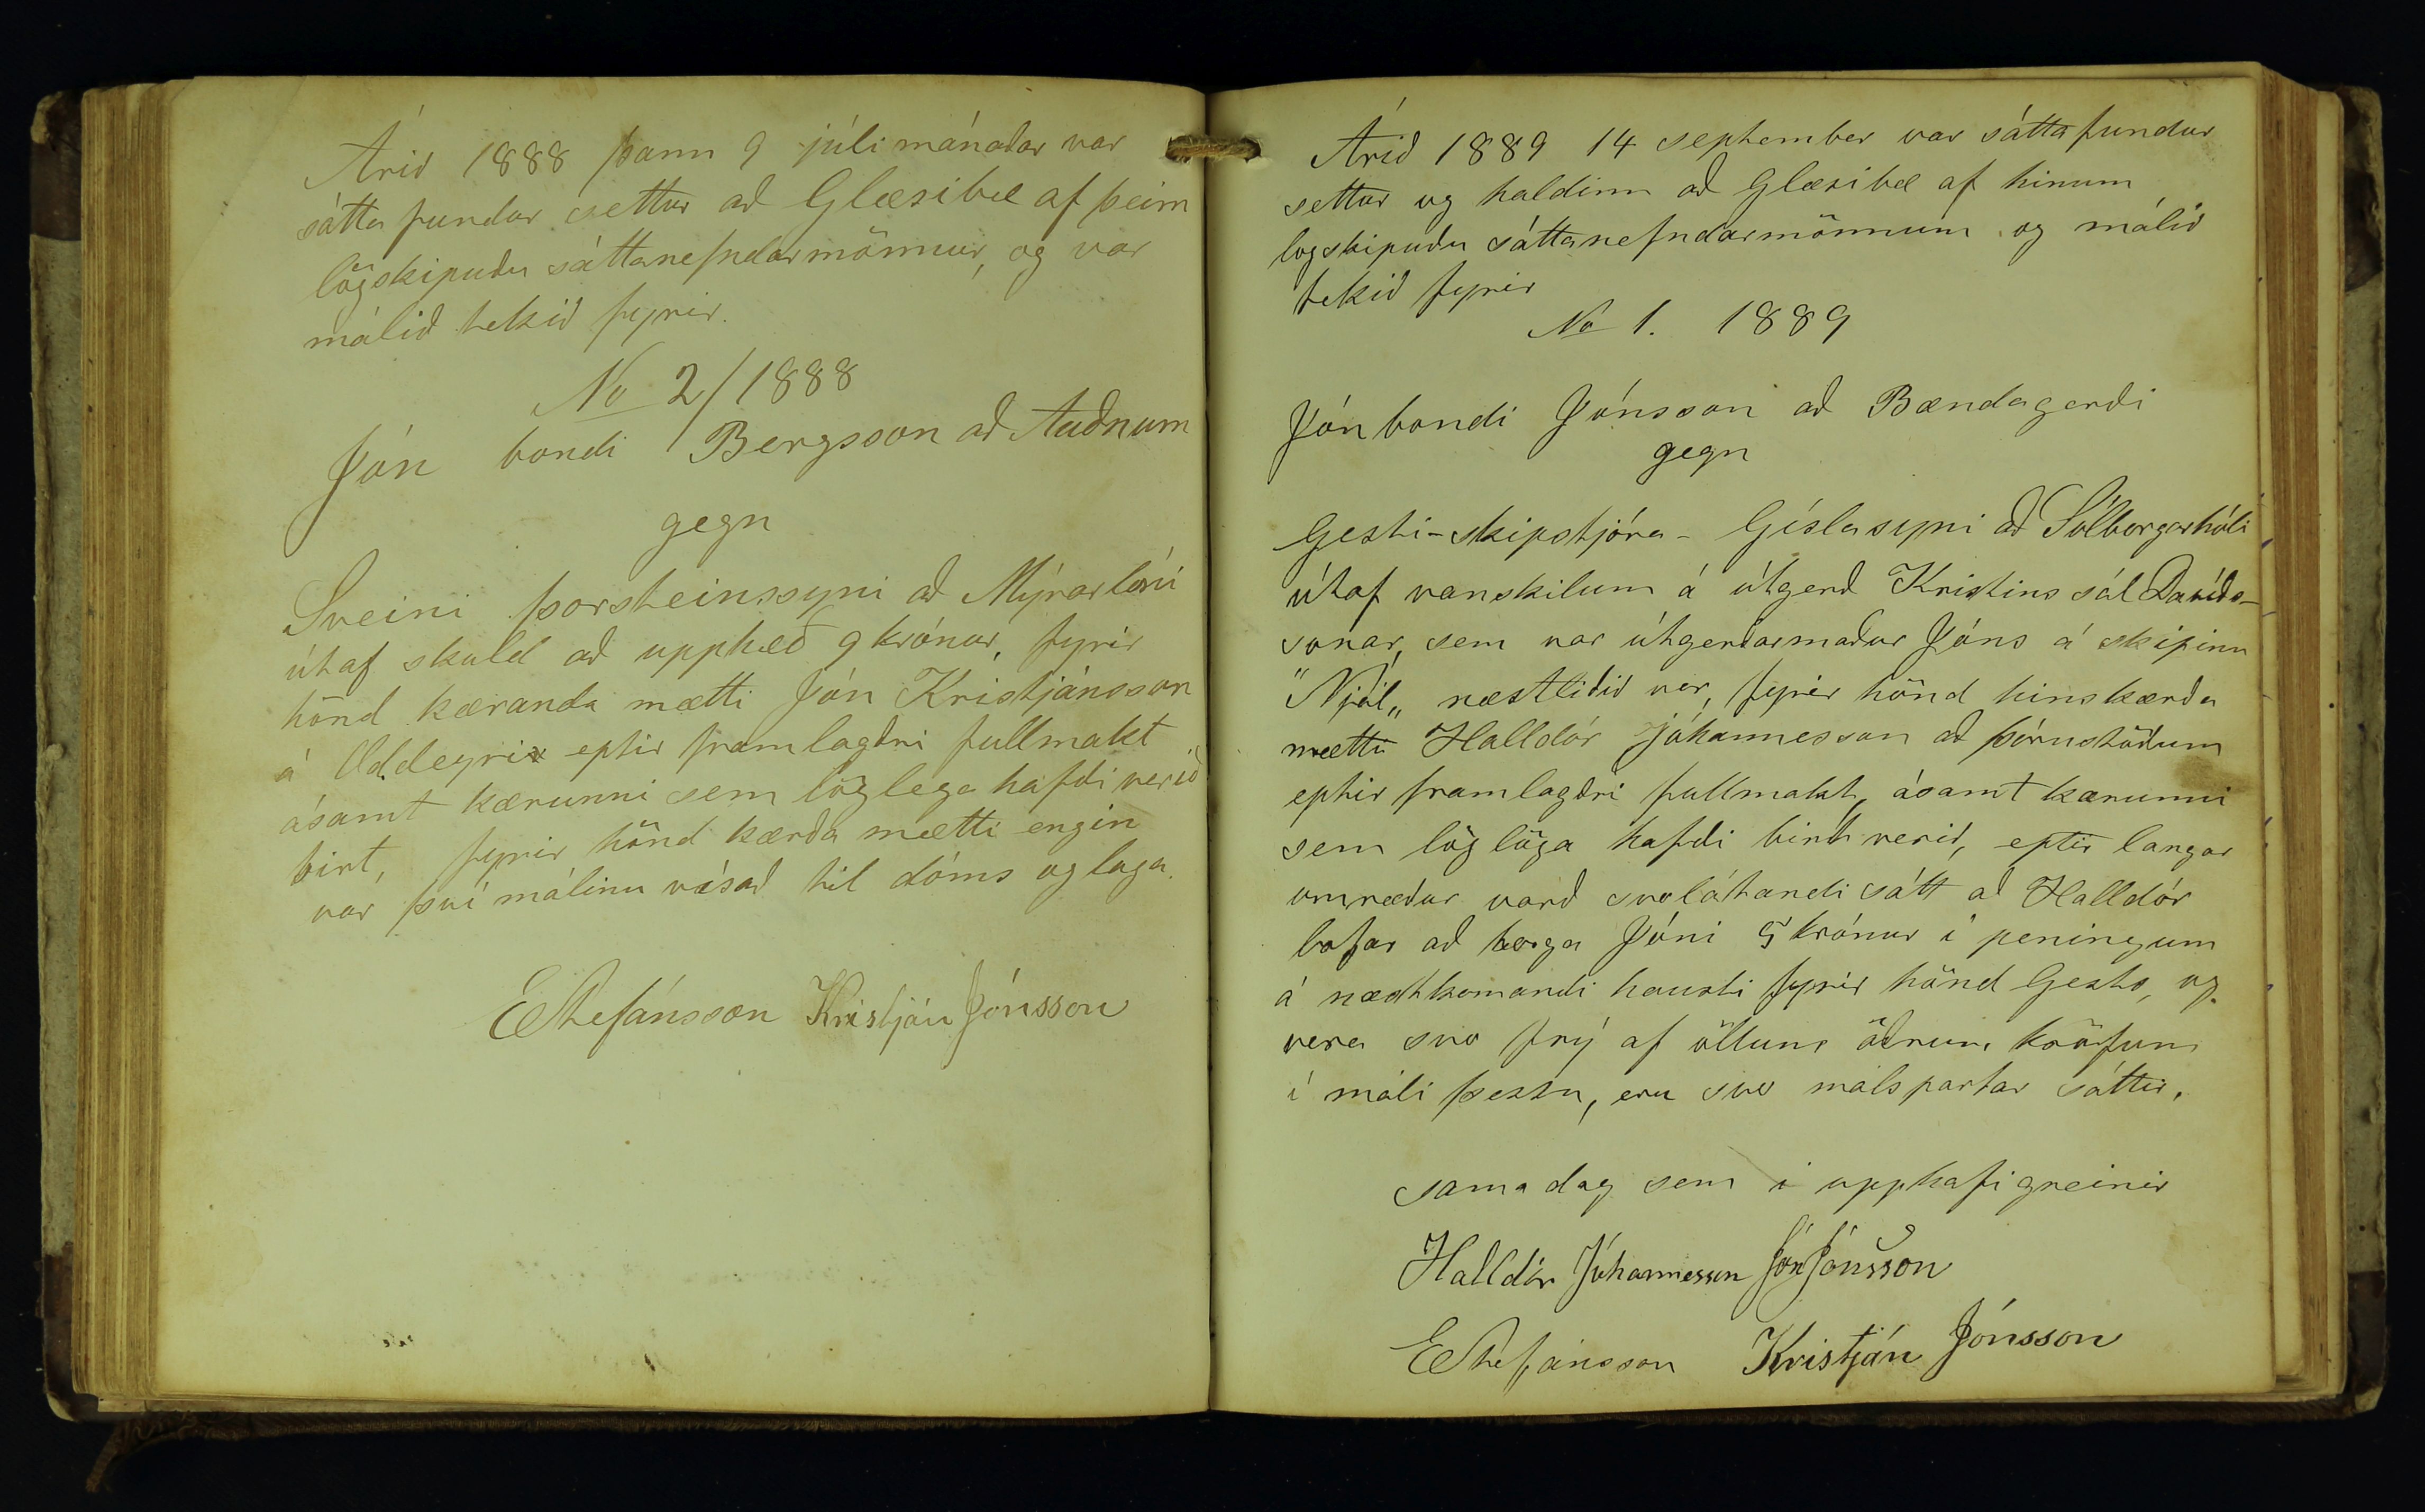 Árið 1888 þann 9 júlimánaðar var
sátta fundur settur að Glæsibæ af þeim
lögskipuðu sáttanefndarmönnur, og var
málið tekið fyrir.
No 2/1888
Jón bondi Bergsson að Auðnum
gegn
Sveini þorsteinssyni að Mýrarlóni
útaf skuld að upphæð 9 krónur, fyrir
hönd kæranda mætti Jón Kristjánsson
á Oddeyri eptir framlagðri fullmakt
ásamt kærunni sem löglega hafði verið
birt, fyrir hönd kærða mætti engin
var því málinu vísað til dóms og laga.
EStefánsson Kristján Jónsson
Árið 1889 14 september var sátta fundur
settur og haldinn að Glæsibæ af hinum
logskipuðu sáttanefndarmönnum og málið
tekið fyrir
No 1. 1889
Jón bondi Jónsson að Bændagerði
gegn
Gesti - skipstjóra - Gíslasyni að Sólborgarhóli
útaf vanskilum á útgerð Kristins sál Davíðs-
sonar, sem var útgerðarmaður Jóns á skipinu
"Njál„ næstliðið vor, fyrir hönd hins kærða
mætti Halldór Jóhannesson að þórustöðum
eptir framlagðri fullmakt, ásamt kærunni
sem löglöga hafði birt verið, eptir langar
umræður varð svoláhandi sátt að Halldór
lofar að borga Jóni 5 krónur í peningum
á næstkomandi hausti fyrir hönd Gests, og
vera svo frý af öllum öðrum kröfum
í máli þessu, eru svo málspartar sáttir.
sama dag sem í upphafi greinir
Halldór Jóhannesson Jón Jónsson
EStefánsson Kristján Jónsson